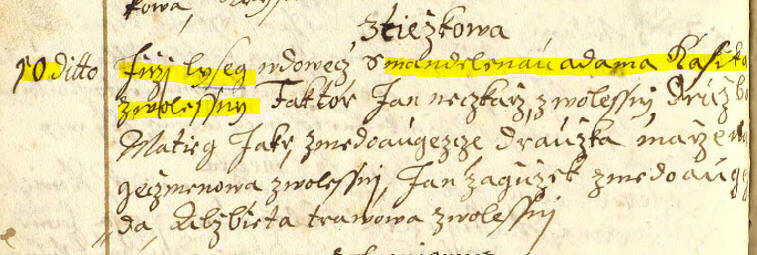 kowa,
ztiežkowa
10 ditto Jirzj lyseg wdowecz s mandelenau adama Kasika
zwolessny Faktor Jan neczkarz, zwolessnj Druzb
Matieg Jakr, zmedoaugezcze drauzka marzen
geczmenowa zwolessnj, Jan zaguzek zmedoaug
da Alzbieta trawowa zwolessnj